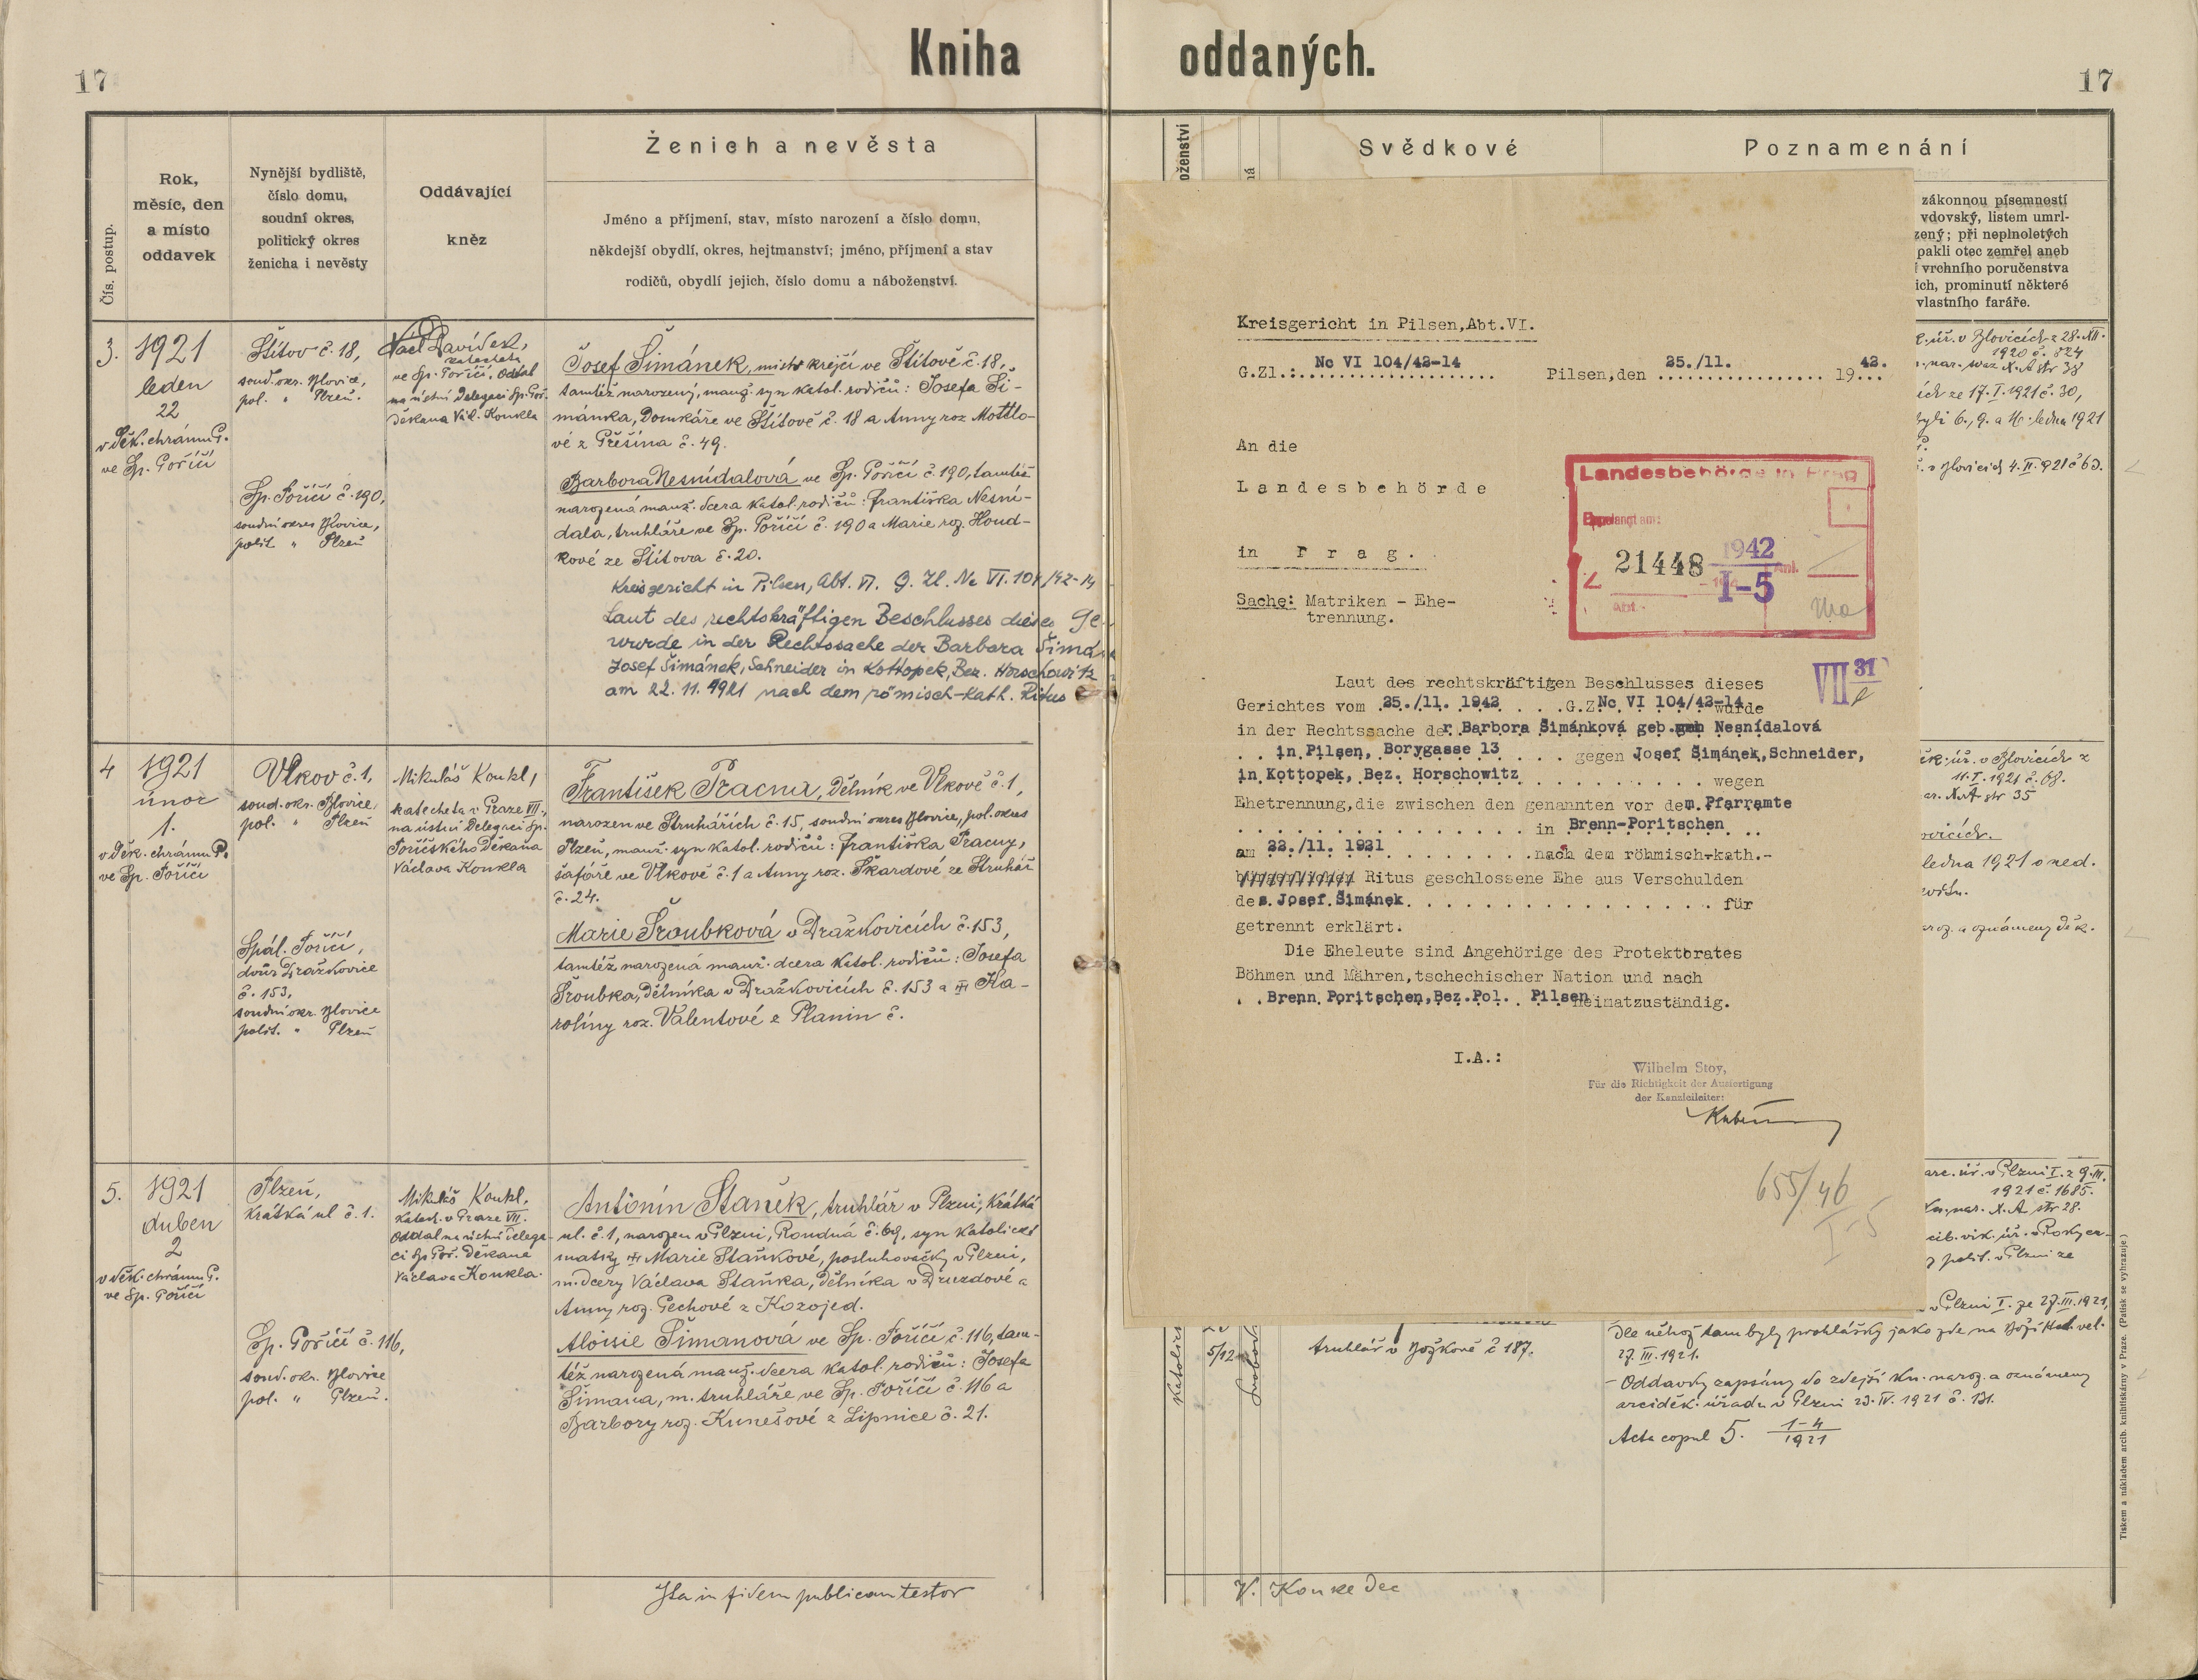 Kniha oddaných.
17
17
Čís. postup.
Rok,
měsíc, den
a místo
oddavek
Nynější bydliště,
číslo domu,
soudní okres,
politický okres
ženicha i nevěsty
Oddávající
kněz
Ženich a nevěsta
Jméno a příjmení, stav, místo narození a číslo domu,
někdejší obydlí, okres, hejtmanství; jméno, příjmení a stav
rodičů, obydlí jejich, číslo domu a náboženství.
Svědkové
Poznamenání
zákonnou písemností
vdovský, listem umrl-
zený; při neplnoletých
pakli otec zemřel aneb
vrchního poručenstva
ich, prominutí některé
vlastního faráře.
3.
1921
leden
22
v děk. chrámu P.
ve Sp. Poříčí
Štítov č. 18,
soud. okr. Blovice,
pol. " Plzeň.
Sp. Poříčí č. 190,
soudní okres Blovice,
polit. " Plzeň
Václ Davídek,
katecheta
ve Sp. Poříčí, oddal
na ústní delegaci Sp. Poř.
děkana Vác. Konkla
Josef Šimánek, mistr krejčí ve Štítově č. 18,
tamtéž narozený, manž. syn katol. rodičů: Josefa Ši-
mánka, domkáře ve Štítově č. 18 a Anny roz. Mottlo-
vé z Přešína č. 49.
Barbora Nesnídalová ve Sp. Poříčí č. 190, tamtéž
narozená manž. dcera katol. rodičů: Františka Nesní-
dala, truhláře ve Sp. Poříčí č. 190 a Marie roz. Houd-
kové ze Štítova č. 20.
Kreisgericht in Pilsen, Abt. VI. G. Zl. Nc VI. 104/42-14
Laut des rechtskräftigen Beschlusses dieses Ge
wurde in der Rechtssache der Barbara Šimá
Josef Šimánek, Schneider in Kottopek, Bez. Horschowitz
am 22. 11. 1921 nach dem römisch-kath. Ritus
4
1921
únor
1.
v děk. chrámu P.
ve Sp. Poříčí
Vlkov č. 1,
soud. okr. Blovice,
pol. " Plzeň
Spál. Poříčí,
dvůr Dražkovice
č. 153,
soudní okr. Blovice
polit. " Plzeň
Mikuláš Konkl,
katecheta v Praze VII.,
na ústní delegaci Sp.
Poříčského děkana
Václava Konkla
František Pracna, dělník ve Vlkově č. 1,
narozen ve Struhařích č. 15, soudní okres Blovice, pol. okres
Plzeň, manž. syn katol. rodičů: Františka Pracny,
šafáře ve Vlkově č. 1 a Anny roz. Škardové ze Struhař
č. 24.
Marie Šroubková v Dražkovicích č. 153,
tamtéž narozená manž. dcera katol. rodičů: Josefa
Šroubka, dělníka v Dražkovicích č. 153 a Ka-
rolíny roz. Valentové z Planin č.
5.
1921
duben
2
v děk. chrámu P.
ve Sp. Poříčí
Plzeň,
Krátká ul č. 1.
Sp. Poříčí č. 116,
soud. okr. Blovice
pol. " Plzeň.
Mikuláš Konkl,
katech. v Praze VII.
oddal na ústní delega-
ci Sp. Poř. děkana
Václava Konkla.
Antonín Staněk, truhlář v Plzni, Krátká
ul. č. 1, narozen v Plzni, Roudná č. 69, syn katolické
matky Marie Staňkové, posluhovačky v Plzni,
m. dcery Václava Staňka, dělníka v Druzdové a
Anny roz. Pechové z Kozojed.
Aloisie Šimanová ve Sp. Poříčí č. 116, tam-
též narozená manž. dcera katol. rodičů: Josefa
Šimana, m. truhláře ve Sp. Poříčí č. 116 a
Barbory roz. Kunešové z Lipnice č. 21.
Ita in fidem publicam testor
V. Konkl Dec
Kreisgericht in Pilsen,Abt.VI.
G.Zl.: Nc VI 104/42-14
Pilsen,den 25./11. 1942.
An die
Landesbehörde
in Prag.
Sache: Matriken - Ehe-
trennung.
Landesbehörde in Prag
Eingelangt am:
21448 1942
I-5
Abt.
VII 31
Laut des rechtskräftigen Beschlusses dieses
Gerichtes vom 25./11. 1942 G.Z. Nc VI 104/42-14 wurde
in der Rechtssache der Barbora Šimánková geb. Nesnídalová
in Pilsen, Borygasse 13 gegen Josef Šimánek,Schneider,
in Kottopek, Bez. Horschowitz wegen
Ehetrennung,die zwischen den genannten vor dem Pfarramte
in Brenn-Poritschen
am 22./11. 1921 nach dem röhmisch-kath.-
Ritus geschlossene Ehe aus Verschulden
des Josef Šimánek für
getrennt erklärt.
Die Eheleute sind Angehörige des Protektorates
Böhmen und Mähren,tschechischer Nation und nach
Brenn Poritschen,Bez.Pol. Pilsen heimatzuständig.
I.A.:
Wilhelm Stoy,
Für die Richtigkeit der Ausfertigung
der Kanzleileiter:
655/46
I-5
úř. v Blovicích z 28. XII.
1920 č. 824
X. A str 38
ze 17. I. 1921 č. 30,
byli 6., 9. a 16. ledna 1921
v Blovicích 4. II. 921 č 63.
děk. úř. v Blovicích z
11. I. 1921 č. 69.
str 35
ledna 1921 o ned.
roz. a oznámeny děk.
úř. v Plzni I. z 9. III.
1921 č. 1685.
nar. X. A str 28.
vik. úř. v Rokyca-
polit. v Plzni ze
v Plzni I. ze 27. III. 1921,
5/12
truhlář v Božkově č 187.
Dle něhož tam byly prohlášky jako zde na Boží Hod vel.
27. III. 1921.
- Oddavky zapsány do zdejší kn. naroz. a oznámeny
arciděk. úřadu v Plzni 23. IV. 1921 č. 131.
Acta copul 5. 1-4/1921
Tiskem a nákladem arcib. knihtiskárny v Praze. (Patisk se vyhrazuje.)